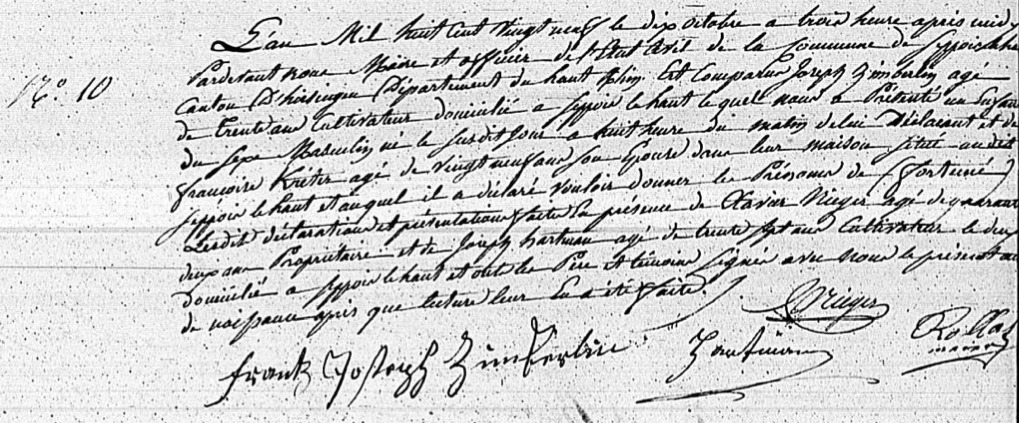 L'an Mil huit Cent Vingt neuf le dix octobre a trois heure après midy
N.° 10
Pardevant nous Maire et officier de l'Etat Civil de la Commune de Seppois le haut
Canton D'hirsingen Département du haut Rhin. Est Comparu Joseph Zimberlin agé
de trente ans Cultivateur domicilié a seppois le haut lequel nous a Présenté un Enfant
du sexe Masculin né le susdit Jour a huit heure du matin de lui Déclarant et de
françoise Kreter agé de vingt neuf ans son Epouse dans leur maison située audit
seppois le haut et auquel il a déclaré vouloir donner le Prénoms de Fortuné
Lesdite déclaration et présentation faite En présence de Xavier Rieger agé de quarante
deux ans Propriétaire et de Joseph hartman agé de trente sept ans Cultivateur le deux
domicilié a seppois le haut et ont les Père et témoins signés avec nous le présent acte
de naissance après que lecture leur En a été faite.
Rieger
frank Joseph Zimberlin Hartman
maire